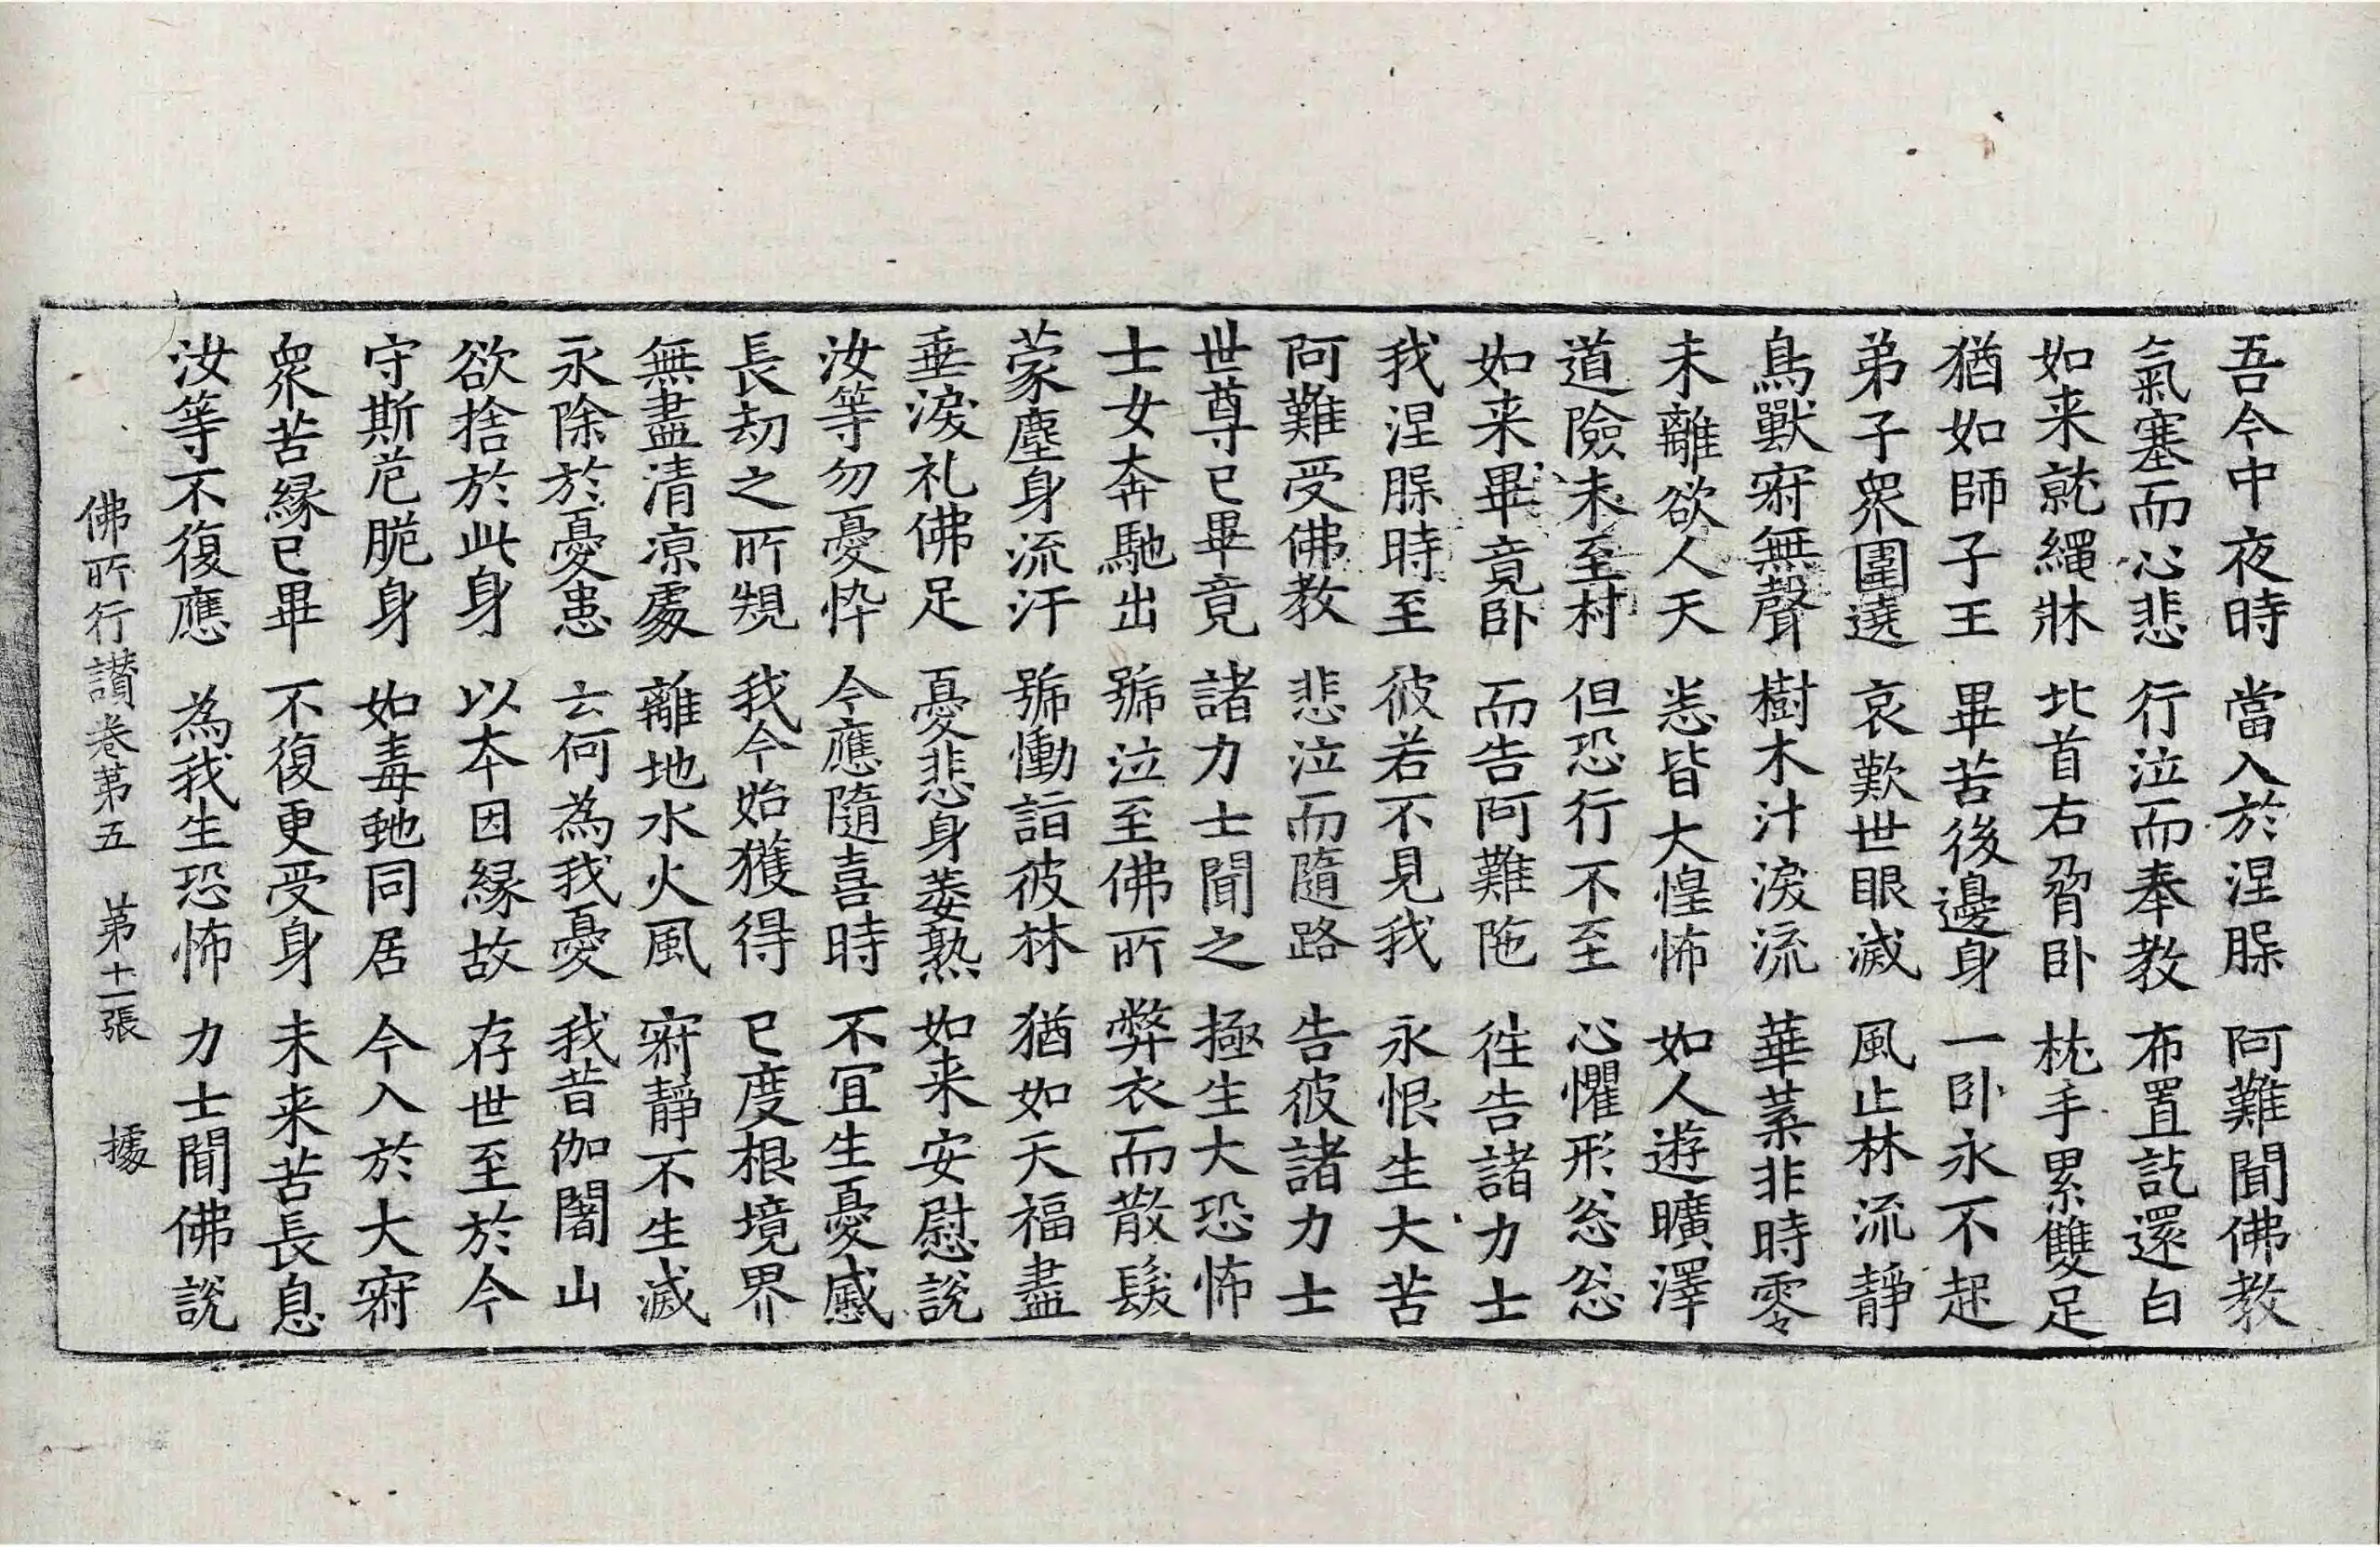 吾今中夜時　當入於涅槃　阿難聞佛教
氣塞而心悲　行泣而奉教　布置訖還白
如来就繩牀　北首右脅卧　枕手累雙足
猶如師子王　畢苦後邊身　一卧永不起
弟子衆圍遶　哀歎世眼滅　風止林流靜
鳥獸寂無聲　樹木汁淚流　華葉非時零
未離欲人天　悉皆大惶怖　如人遊曠澤
道險未至村　但恐行不至　心懼形忩忩
如来畢竟卧　而告阿難陁　徃告諸力士
我涅槃時至　彼若不見我　永恨生大苦
阿難受佛教　悲泣而隨路　告彼諸力士
世尊已畢竟　諸力士聞之　極生大恐怖
士女奔馳出　號泣至佛所　弊衣而散髮
蒙塵身流汗　號慟詣彼林　猶如天福盡
垂淚礼佛足　憂悲身萎熟　如来安慰說
汝等勿憂悴　今應隨喜時　不冝生憂慼
長劫之所規　我今始獲得　已度根境界
無盡清凉處　離地水火風　寂靜不生滅
永除於憂患　云何為我憂　我昔伽闍山
欲捨於此身　以本因緣故　存世至於今
守斯危脆身　如毒虵同居　今入於大寂
衆苦緣已畢　不復更受身　未来苦長息
汝等不復應　為我生恐怖　力士聞佛說
佛所行讃卷第五　第十二張　據